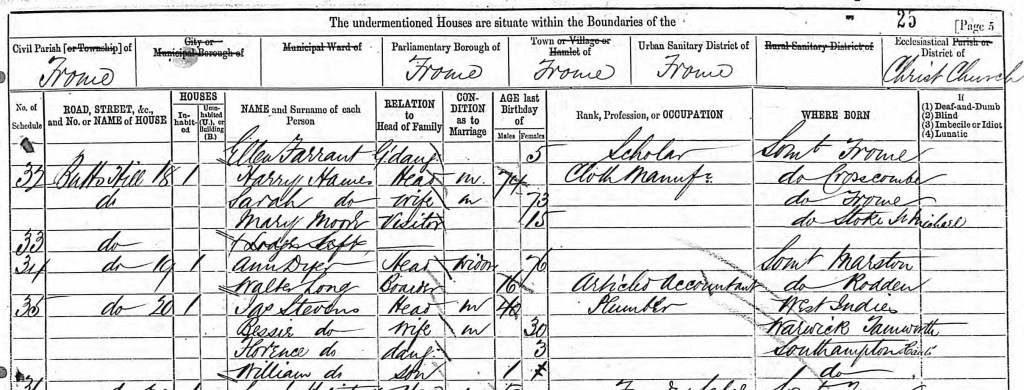 The undermentioned Houses are situate within the Boundaries of the 25 [Page 5
Civil Parish [or Township] of City or Municipal Borough of Municipal Ward of Parliamentary Borough of Town or Village or Hamlet of Urban Sanitary District of Rural Sanitary District of Ecclesiastical Parish or District of
Frome Frome Frome Frome Christ Church
No. of Schedule ROAD, STREET, &c., and No. or NAME of HOUSE HOUSES Inhabited Uninhabited (U.), or Building (B.) NAME and Surname of each Person RELATION to Head of Family CONDITION as to Marriage AGE last Birthday of Males Females Rank, Profession, or OCCUPATION WHERE BORN If (1) Deaf-and-Dumb (2) Blind (3) Imbecile or Idiot (4) Lunatic
Ellen Farrant G'daug 5 Scholar Somt Frome
32 Butts Hill 18 1 Harry Hames Head m. 74 Cloth Manufr do Croscombe
do Sarah do wife m 73 do Frome
Mary Moor Visitor 15 do Stoke St Michael
33 do + Lodger left
34 do 19 1 Ann Dyer Head Widow 76 Somt Marston
Walter Long Boarder 16 Articled Accountant do Rodden
35 do 20 1 Jas Stevens Head m 40 Plumber West Indies
Bessie do wife m 30 Warwick Tamworth
Florence do daug. 3 Southampton
William do son 1 do